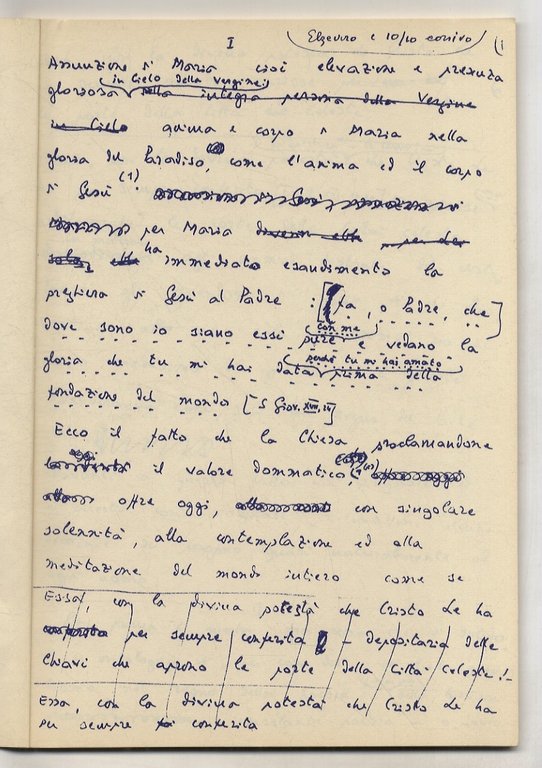 Elzeviro c 10/10 corsivo
I
(1
Assunzione di Maria cioè elevazione e presenza
in Cielo della Vergine:
gloriosa nella integra persona della Vergine
in Cielo anima e corpo di Maria nella
gloria del Paradiso, come l'anima ed il corpo
di Gesù (1).
per Maria
ha immediato esaudimento la
preghiera di Gesù al Padre : [fa, o Padre, che]
con me
dove sono io siano essi pure e vedano la
perché tu mi hai amato
gloria che tu mi hai data prima della
fondazione del mondo [S Giov. XVII, IV]
Ecco il fatto che la Chiesa proclamandone
oggi
il valore dommatico
offre oggi, con singolare
solennità, alla contemplazione ed alla
meditazione del mondo intiero come se
Essa, con la divina potestà che Cristo Le ha
per sempre conferita - depositaria delle
Chiavi che aprono le porte della Città Celeste! -
Essa, con la divina potestà che Cristo Le ha
per sempre conferita